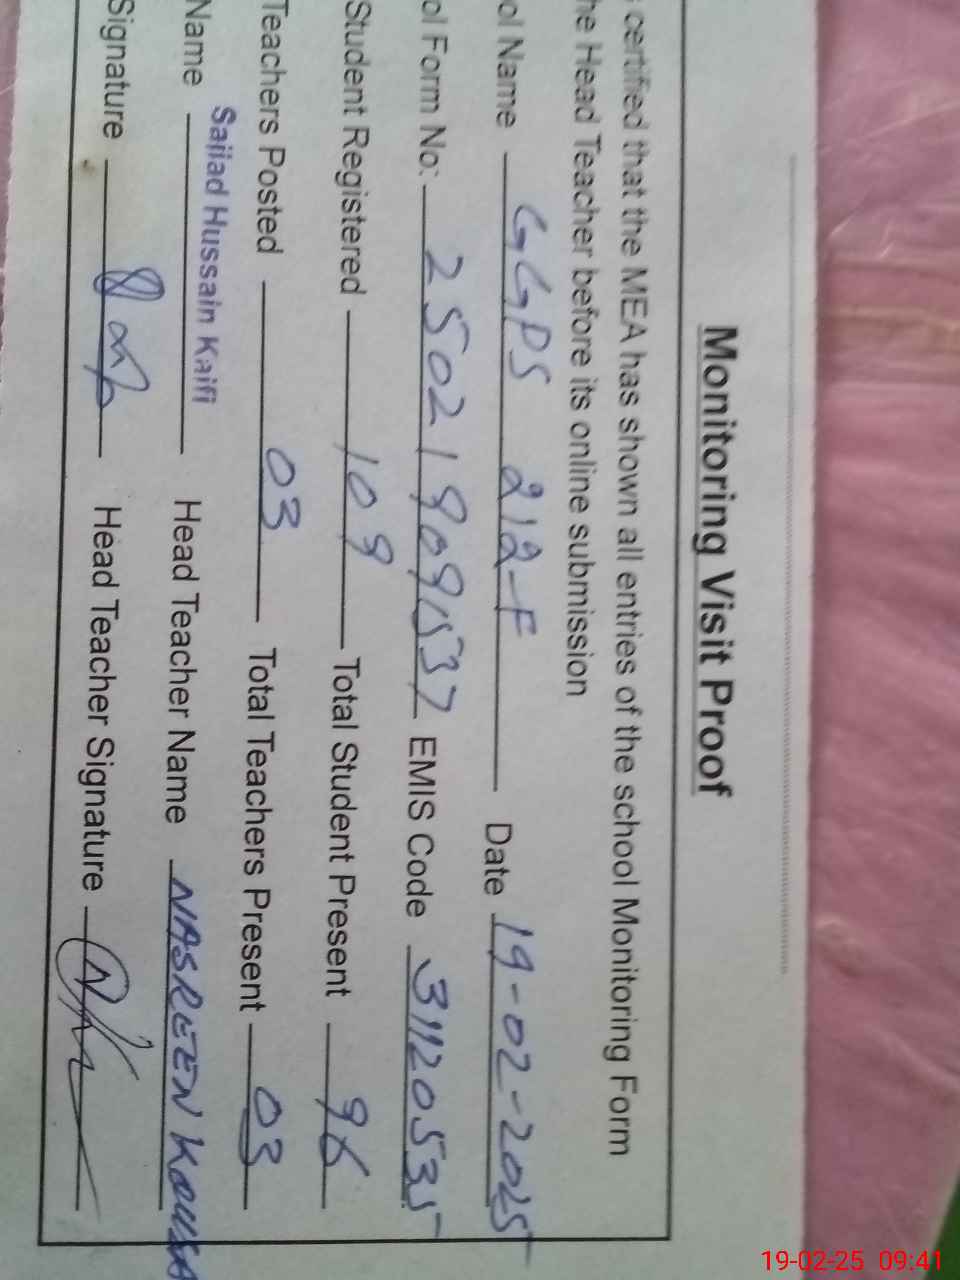 Monitoring Visit Proof
certified that the MEA has shown all entries of the school Monitoring Form
he Head Teacher before its online submission
ol Name GGPS 212-F Date 19-02-2025
ol Form No: 250219091537 EMIS Code 31120535
Student Registered 109 Total Student Present 96
Teachers Posted 03 Total Teachers Present 03
Name Sajjad Hussain Kaifi Head Teacher Name NASREEN Kausa
Signature Head Teacher Signature
19-02-25 09:41